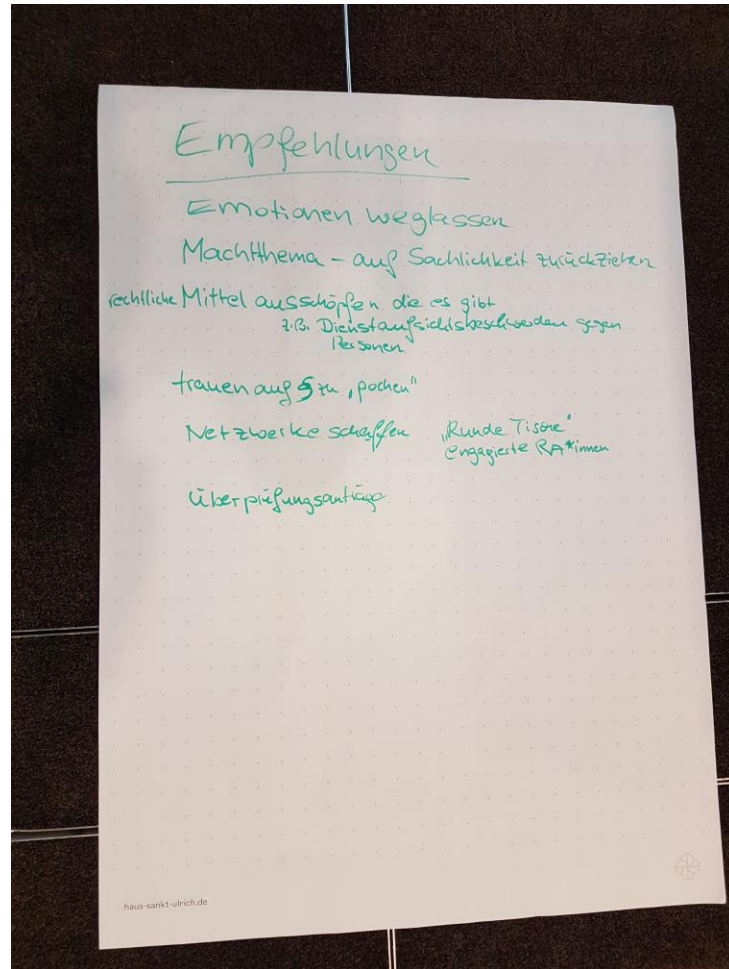 Empfehlungen
Emotionen weglassen
Machtthema – auf Sachlichkeit zurückziehen
rechtliche Mittel ausschöpfen die es gibt
z.B. Dienstaufsichtsbeschwerden gegen
Personen
trauen auf § zu „pochen“
Netzwerke schaffen „Runde Tische“
engagierte RA*innen
Überprüfungsanträge
haus-sankt-ulrich.de